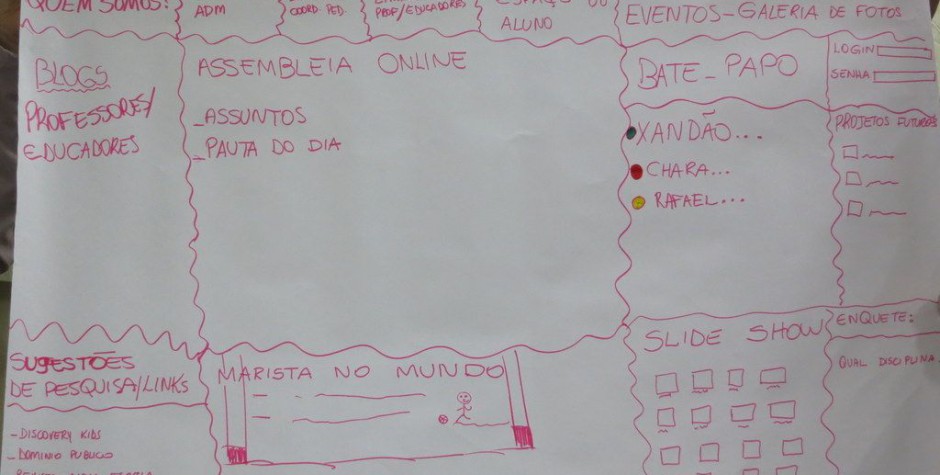 QUEM SOMOS?
ADM
COORD. PED.
PROF/EDUCADORES
ALUNO
EVENTOS-GALERIA DE FOTOS
BLOGS
PROFESSORES/
EDUCADORES
ASSEMBLEIA ONLINE
_ASSUNTOS
_PAUTA DO DIA
BATE-PAPO
XANDÃO...
CHARA...
RAFAEL...
LOGIN
SENHA
PROJETOS FUTUROS
SUGESTÕES
DE PESQUISA/LINKS
-DISCOVERY KIDS
-DOMINIO PUBLICO
MARISTA NO MUNDO
SLIDE SHOW
ENQUETE:
QUAL DISCIPLINA